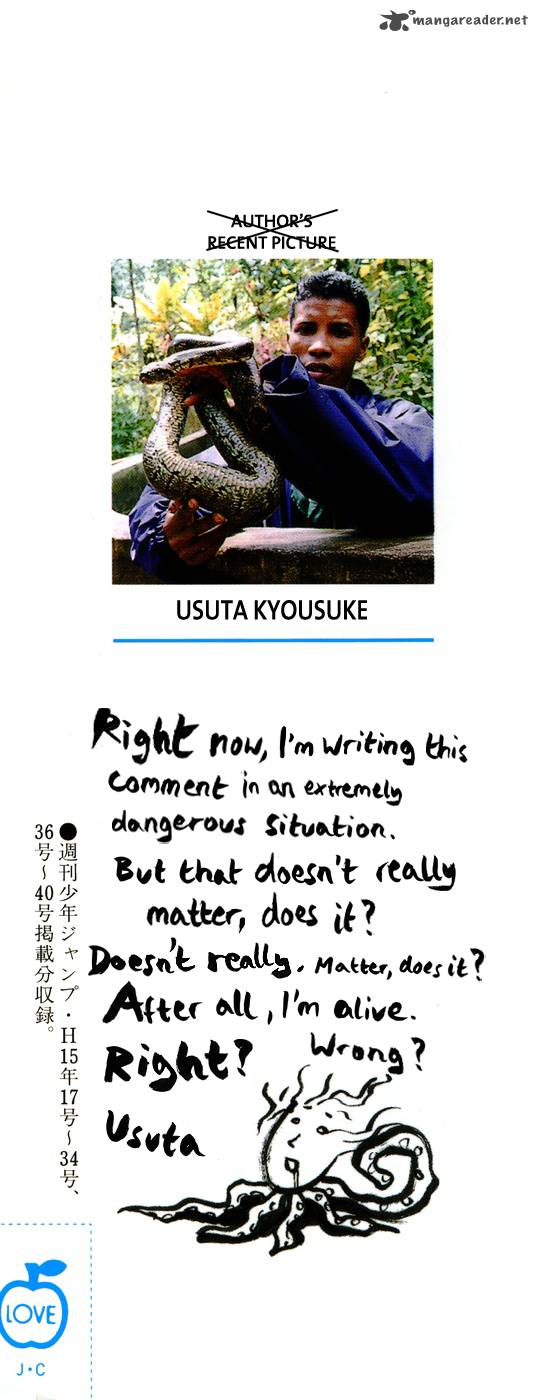 mangareader.net
AUTHOR'S
RECENT PICTURE
USUTA KYOUSUKE
Right now, I'm writing this
comment in an extremely
dangerous situation.
But that doesn't really
matter, does it?
Doesn't really. Matter, does it?
After all, I'm alive.
Right? Wrong?
Usuta
●週刊少年ジャンプ・H15年17号〜34号、
36号〜40号掲載分収録。
LOVE
J・C